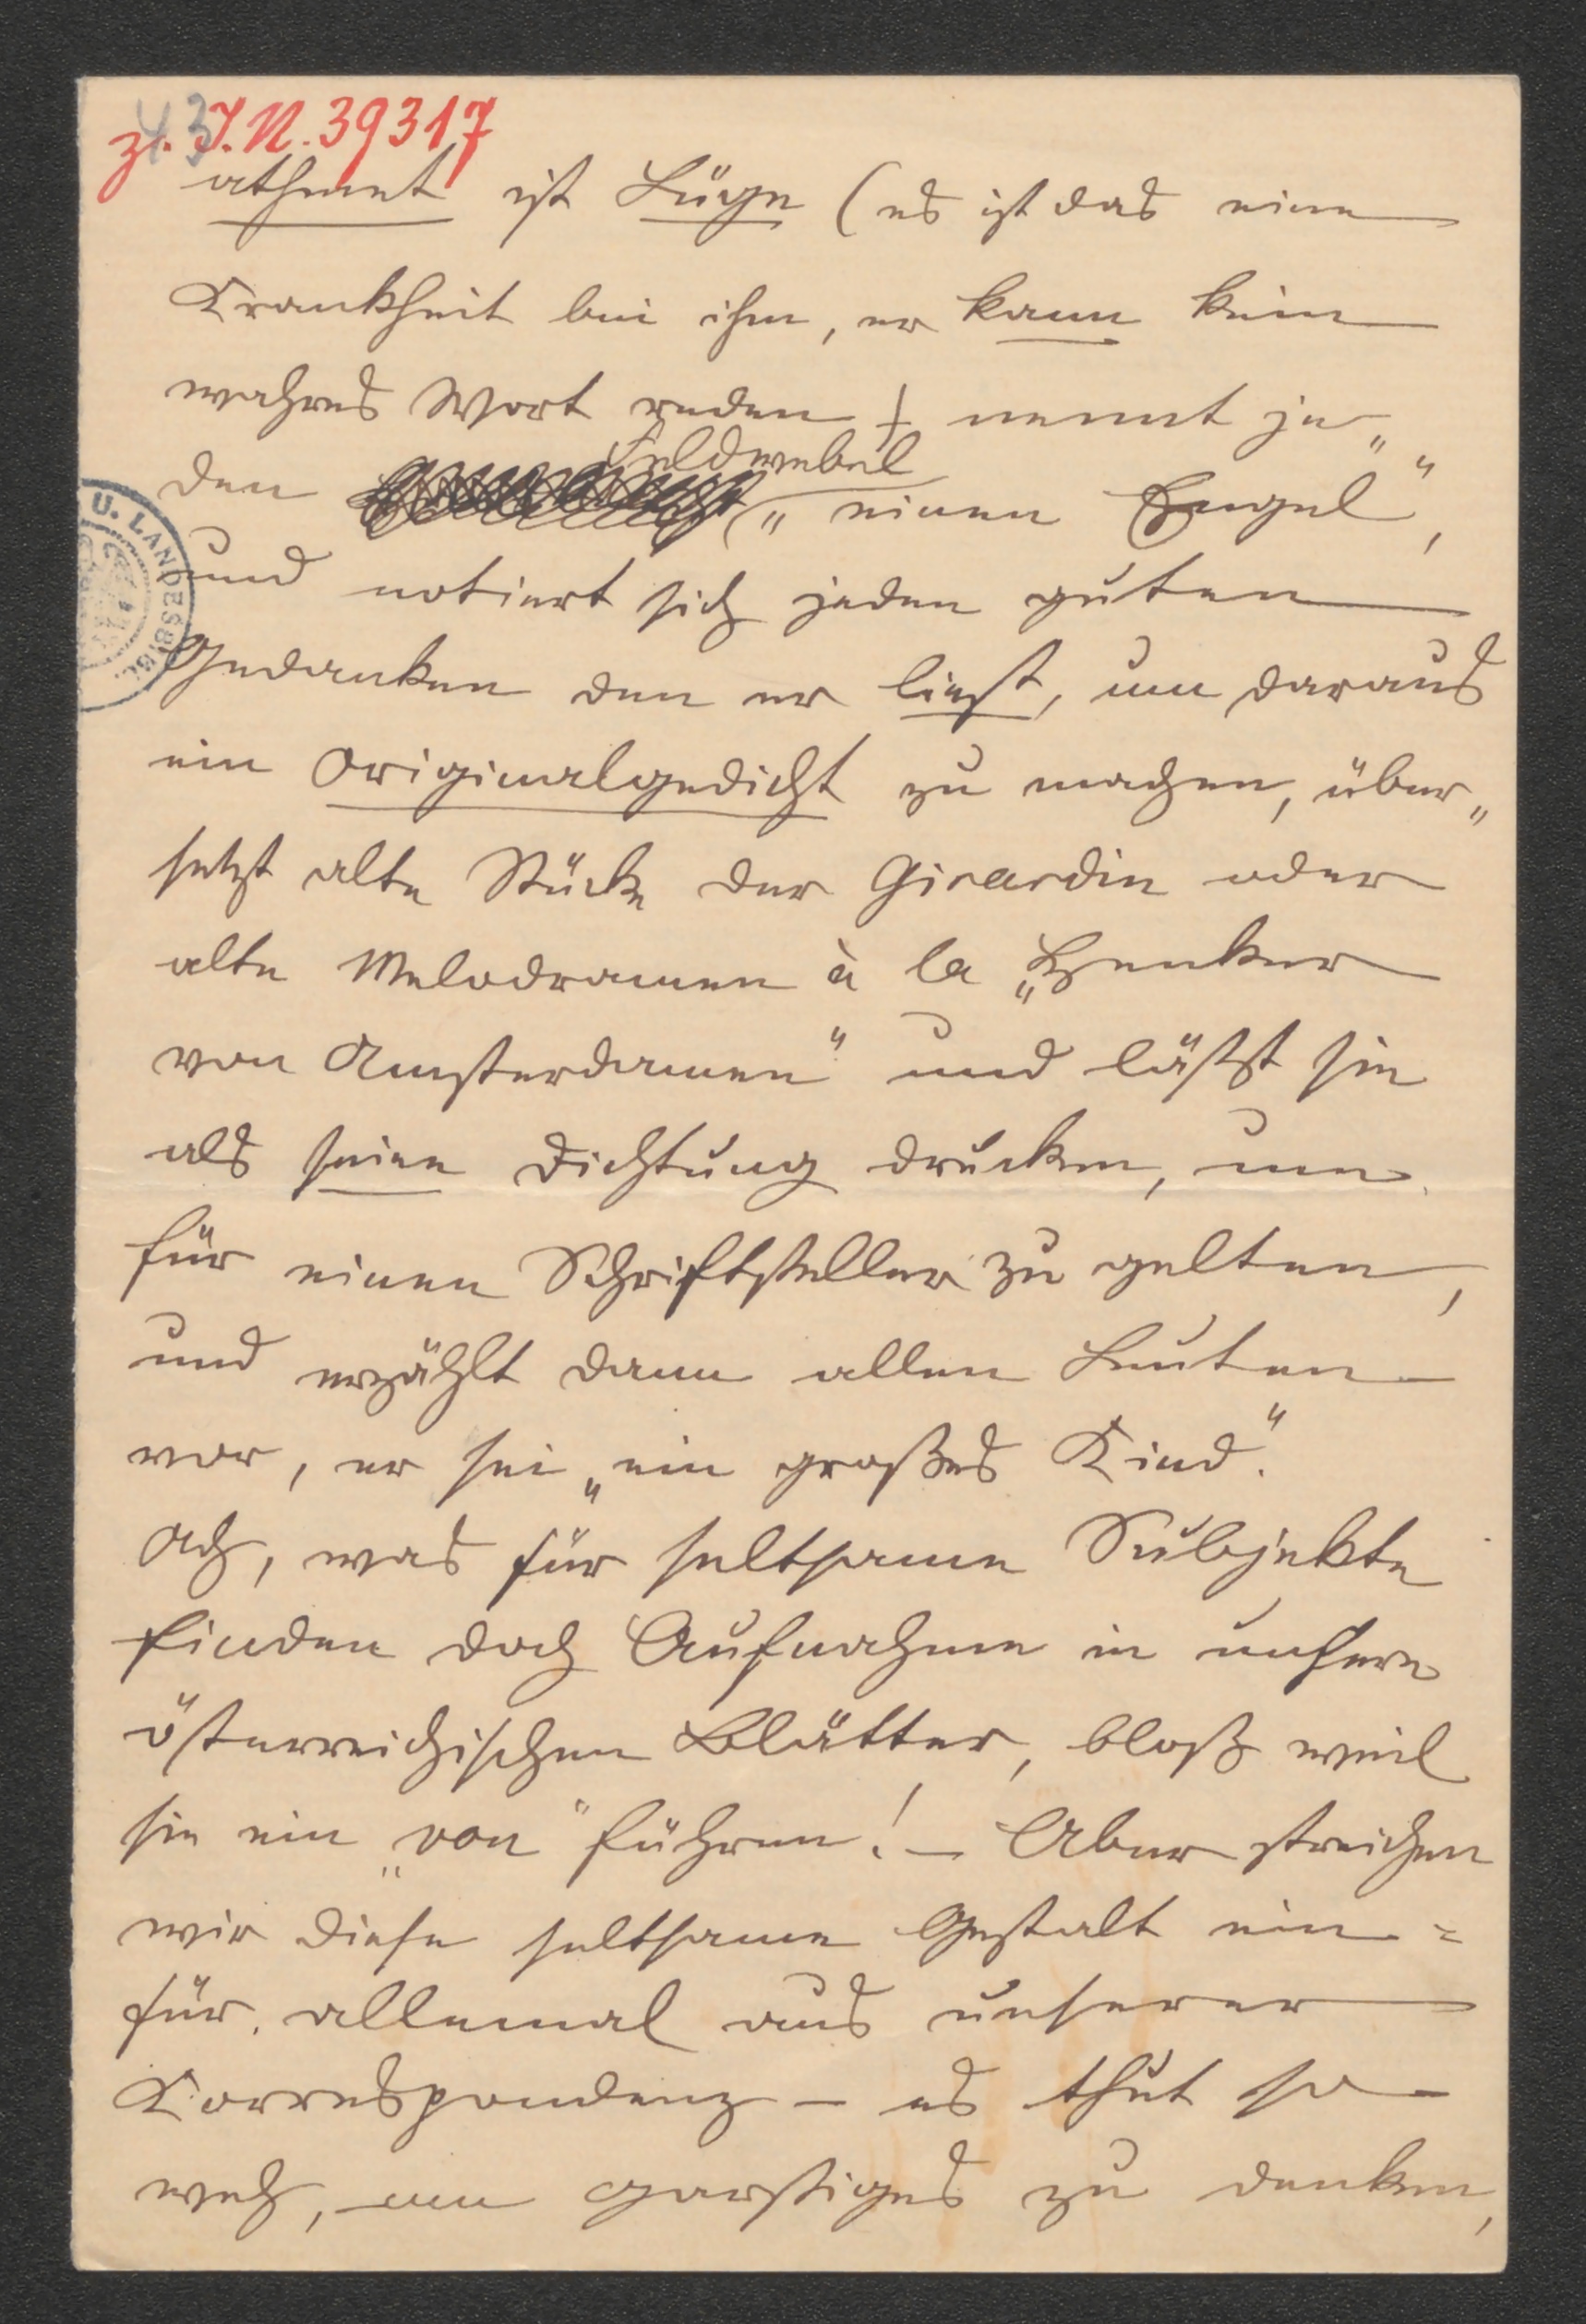 zu I.N. 39317
43
athmet ist Lüge (es ist das eine
Krankheit bei ihm, er kann kein
wahres Wort reden) nennt je„
den Feldwebel „einen Engel“,
und notiert sich jeden guten
Gedanken den er liest, um daraus
ein Originalgedicht zu machen, über„
setzt alte Stücke der Girardin oder
alte Melodramen à la „Henker
von Amsterdamen“ und läßt sie
als seine Dichtung drucken, um
für einen Schriftsteller zu gelten,
und erzählt dann allen Leuten
vor, er sei „ein großes Kind“.
Ach, was für seltsame Subjekte
finden doch Aufnahme in unsere
österreichischen Blätter, bloß weil
sie ein „von“ führen! – Aber streichen
wir diese seltsame Gestalt ein=
für allemal aus unserer
Korrespondenz – es thut so
weh, an garstiges zu denken,
U. LANDESBIBL.